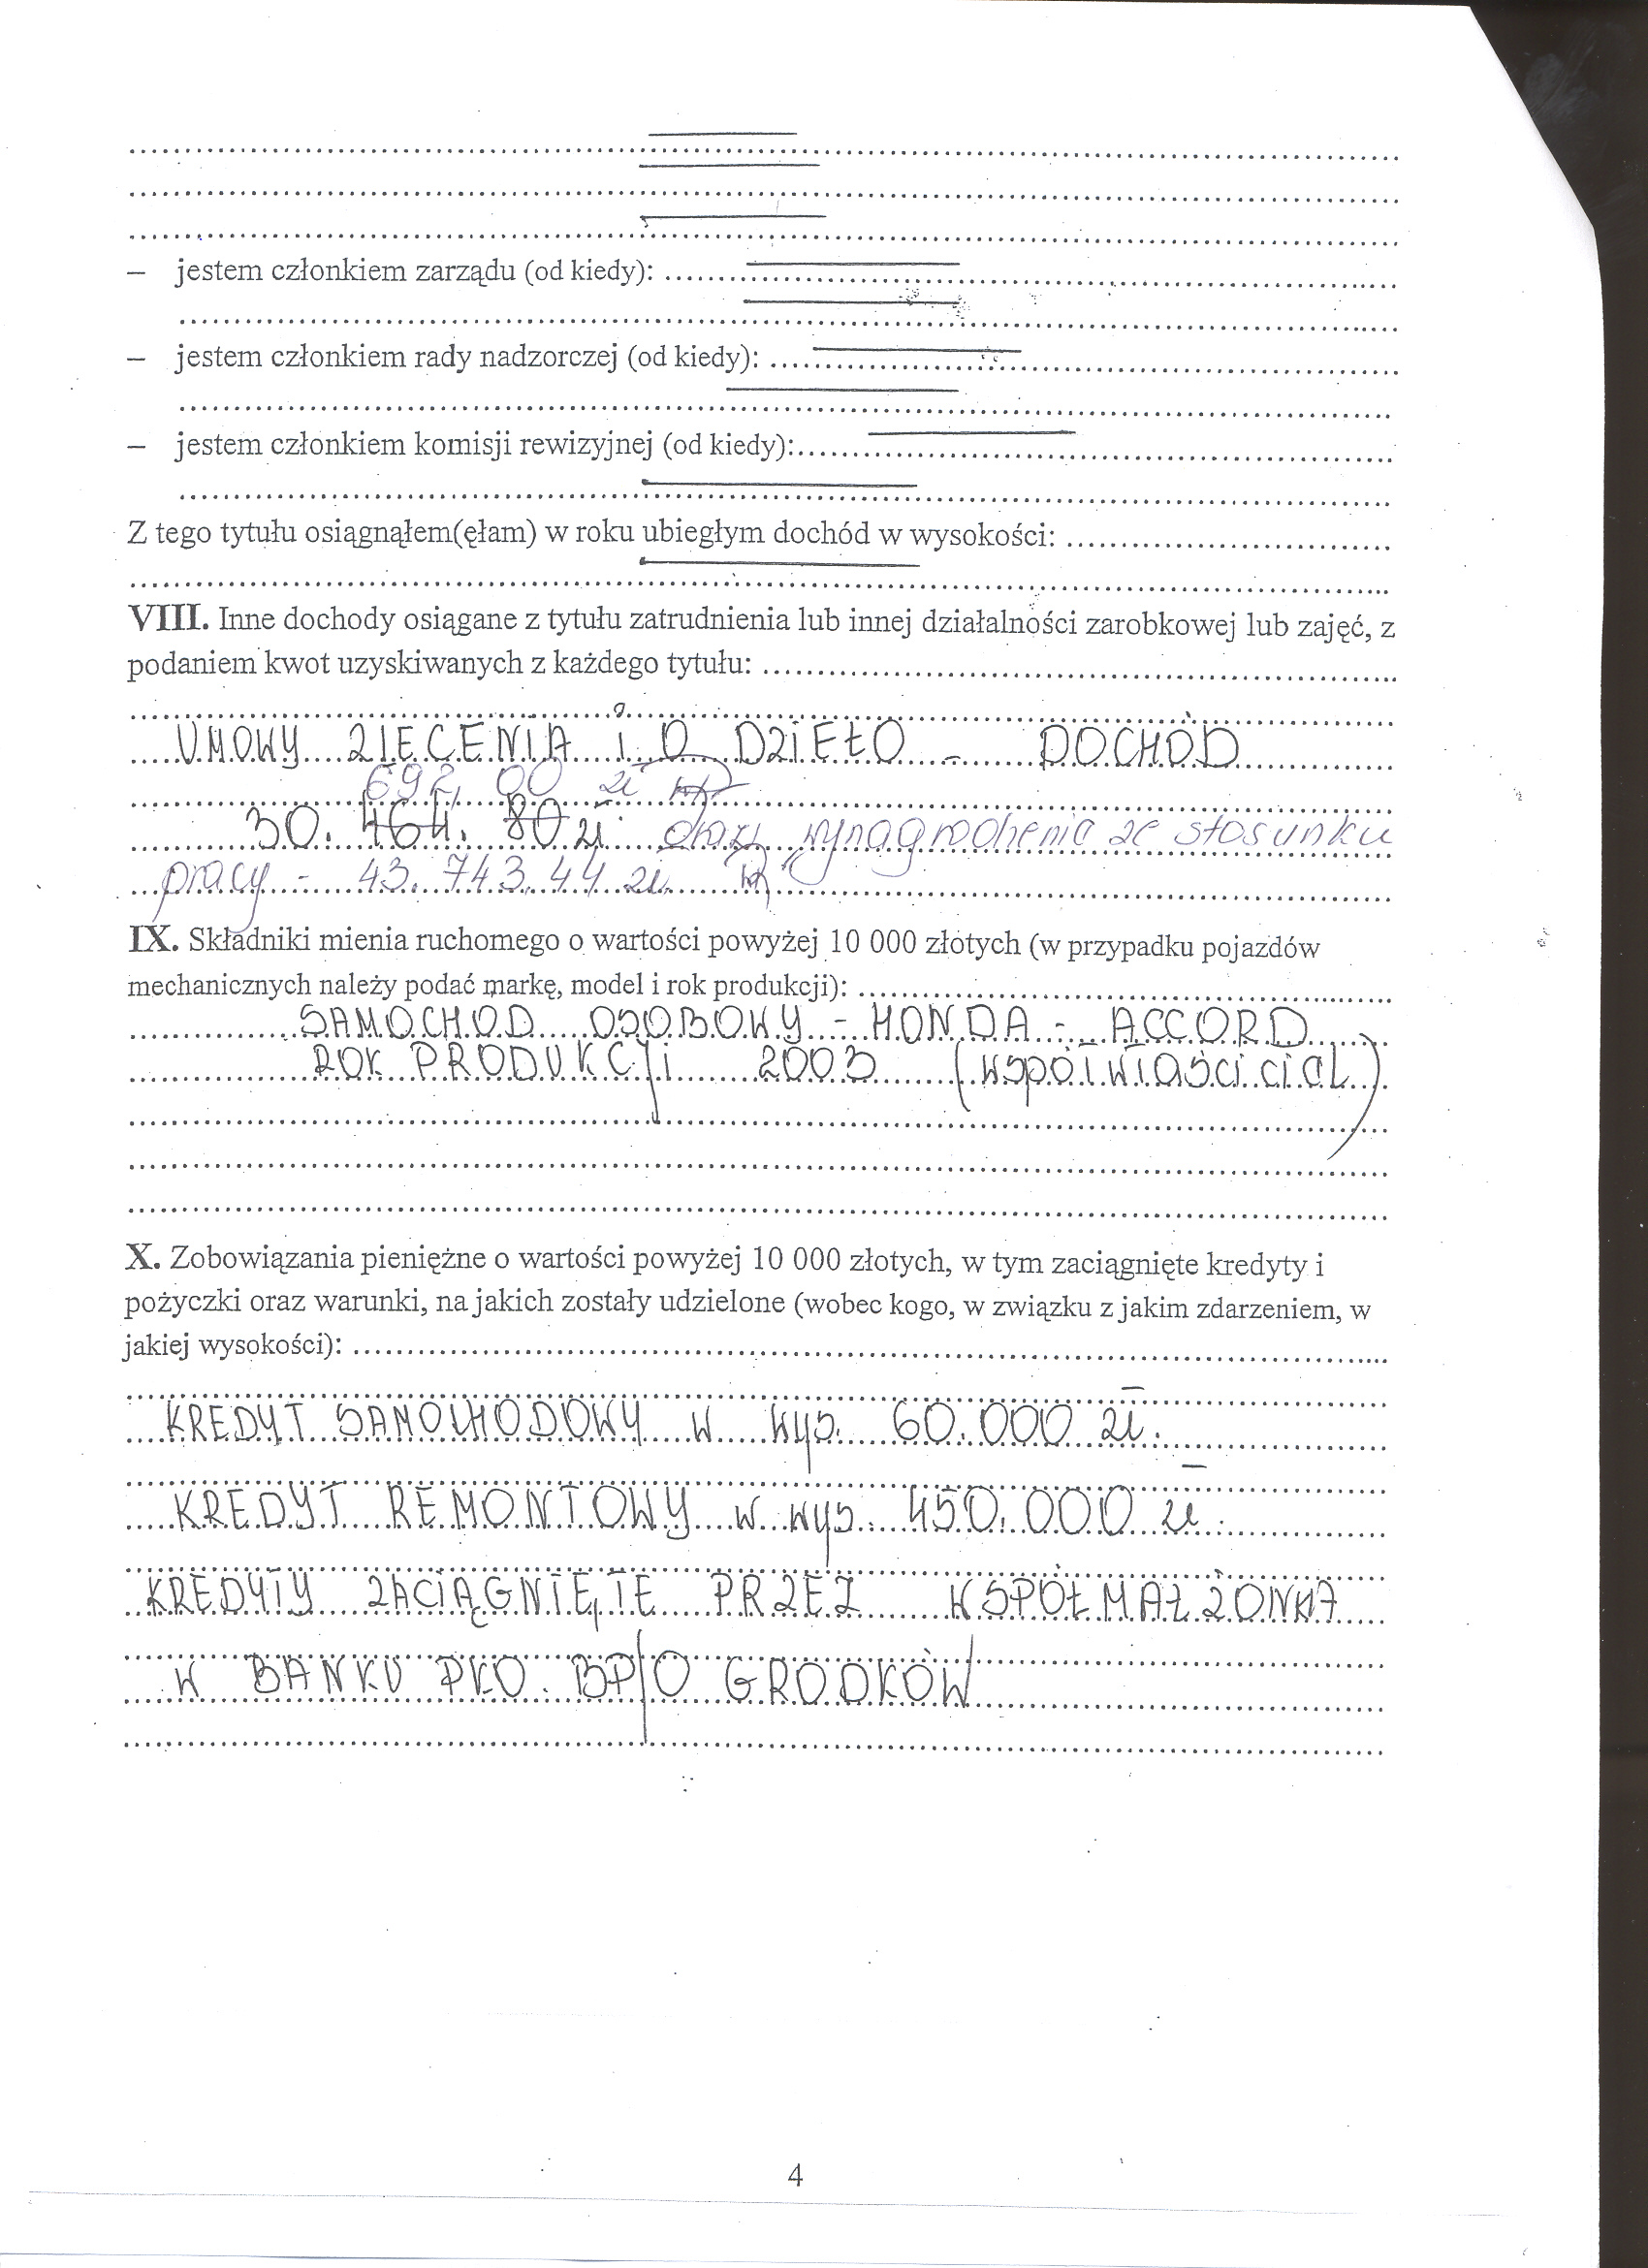 – jestem członkiem zarządu (od kiedy):
– jestem członkiem rady nadzorczej (od kiedy):
– jestem członkiem komisji rewizyjnej (od kiedy):
Z tego tytułu osiągnąłem(ęłam) w roku ubiegłym dochód w wysokości:
VIII. Inne dochody osiągane z tytułu zatrudnienia lub innej działalności zarobkowej lub zajęć, z
podaniem kwot uzyskiwanych z każdego tytułu:
UMOWY ZLECENIA i O DZIEŁO - DOCHÓD
692,00 zł
30.464.80 zł oraz wynagrodzenia ze stosunku
pracy - 43.743.44 zł
IX. Składniki mienia ruchomego o wartości powyżej 10 000 złotych (w przypadku pojazdów
mechanicznych należy podać markę, model i rok produkcji):
SAMOCHOD OSOBOWY - HONDA - ACCORD
ROK PRODUKCJI 2003 (WSPÓŁWŁAŚCICIEL)
X. Zobowiązania pieniężne o wartości powyżej 10 000 złotych, w tym zaciągnięte kredyty i
pożyczki oraz warunki, na jakich zostały udzielone (wobec kogo, w związku z jakim zdarzeniem, w
jakiej wysokości):
KREDYT SAMOCHODOWY W WYS. 60.000 zł.
KREDYT REMONTOWY W WYS. 450.000 zł.
KREDYTY ZACIĄGNIĘTE PRZEZ WSPÓŁMAŁŻONKA
W BANKU PKO. BP/O GRODKÓW
4